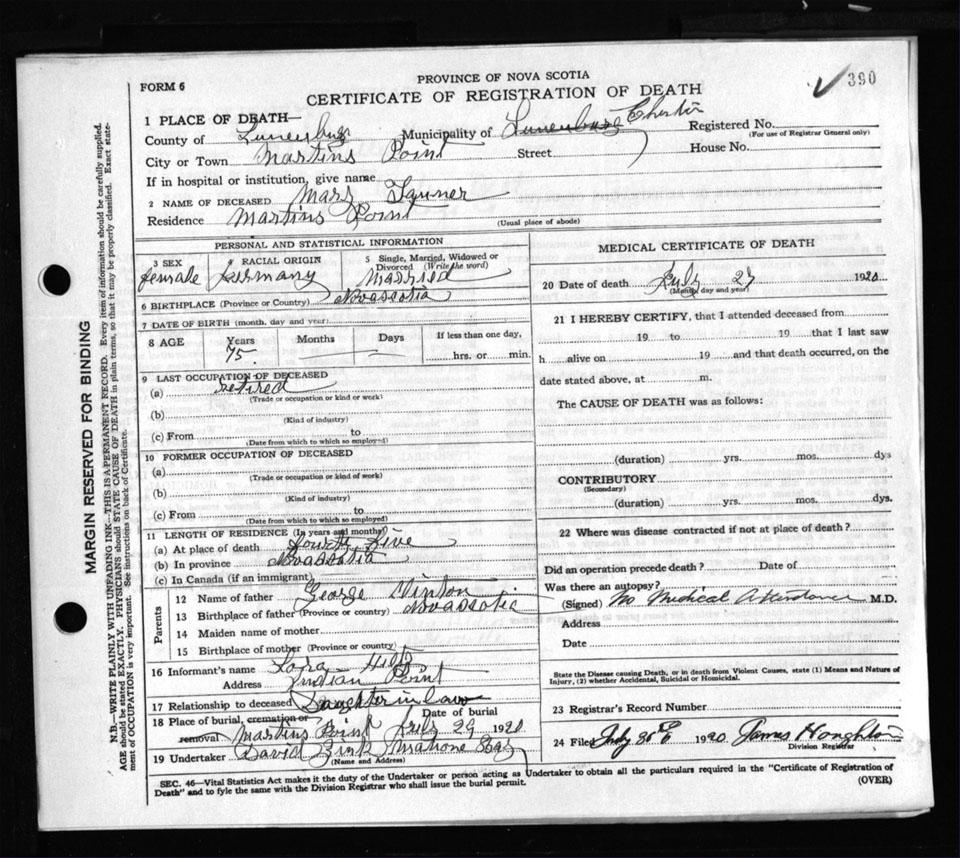 390
PROVINCE OF NOVA SCOTIA
FORM 6
CERTIFICATE OF REGISTRATION OF DEATH
1 PLACE OF DEATH—
County of Lunenburg Municipality of Lunenburg Chester Registered No.
(For use of Registrar General only)
City or Town Martins Point Street House No.
If in hospital or institution, give name
2 NAME OF DECEASED Mary Tanner
Residence Martins Point
(Usual place of abode)
PERSONAL AND STATISTICAL INFORMATION
3 SEX RACIAL ORIGIN 5 Single, Married, Widowed or Divorced (Write the word)
female Germany Married
6 BIRTHPLACE (Province or Country) Novascotia
7 DATE OF BIRTH (month, day and year)
8 AGE Years Months Days If less than one day,
75 hrs. or min.
9 LAST OCCUPATION OF DECEASED
(a) retired
(Trade or occupation or kind or work)
(b)
(Kind of industry)
(c) From to
(Date from which to which so employed)
10 FORMER OCCUPATION OF DECEASED
(a)
(Trade or occupation or kind of work)
(b)
(Kind of industry)
(c) From to
(Date from which to which so employed)
11 LENGTH OF RESIDENCE (In years and months)
(a) At place of death five
(b) In province Novascotia
(c) In Canada (if an immigrant)
Parents
12 Name of father George
13 Birthplace of father (Province or country) Novascotia
14 Maiden name of mother
15 Birthplace of mother (Province or country)
16 Informant's name Hilts
Address Indian Point
17 Relationship to deceased Daughter in law
18 Place of burial, cremation or removal Date of burial
Martins Point July 29 1920
19 Undertaker David Zink Mahone Bay
(Name and Address)
MEDICAL CERTIFICATE OF DEATH
20 Date of death July 27 1920
(Month, day and year)
21 I HEREBY CERTIFY, that I attended deceased from
19 to 19 that I last saw
h alive on 19 and that death occurred, on the
date stated above, at m.
The CAUSE OF DEATH was as follows:
(duration) yrs. mos. dys
CONTRIBUTORY
(Secondary)
(duration) yrs. mos. dys.
22 Where was disease contracted if not at place of death?
Did an operation precede death? Date of
Was there an autopsy?
(Signed) No Medical Attendance M.D.
Address
Date
State the Disease causing Death, or in death from Violent Causes, state (1) Means and Nature of
Injury, (2) whether Accidental, Suicidal or Homicidal.
23 Registrar's Record Number
24 Filed July 30th 1920 James Houghton
Division Registrar
SEC. 46—Vital Statistics Act makes it the duty of the Undertaker or person acting as Undertaker to obtain all the particulars required in the "Certificate of Registration of
Death" and to fyle the same with the Division Registrar who shall issue the burial permit.
(OVER)
MARGIN RESERVED FOR BINDING
N.B.—WRITE PLAINLY WITH UNFADING INK—THIS IS A PERMANENT RECORD. Every item of information should be carefully supplied.
AGE should be stated EXACTLY. PHYSICIANS should STATE CAUSE OF DEATH in plain terms, so that it may be properly classified. Exact state-
ment of OCCUPATION is very important. See instructions on back of Certificate.